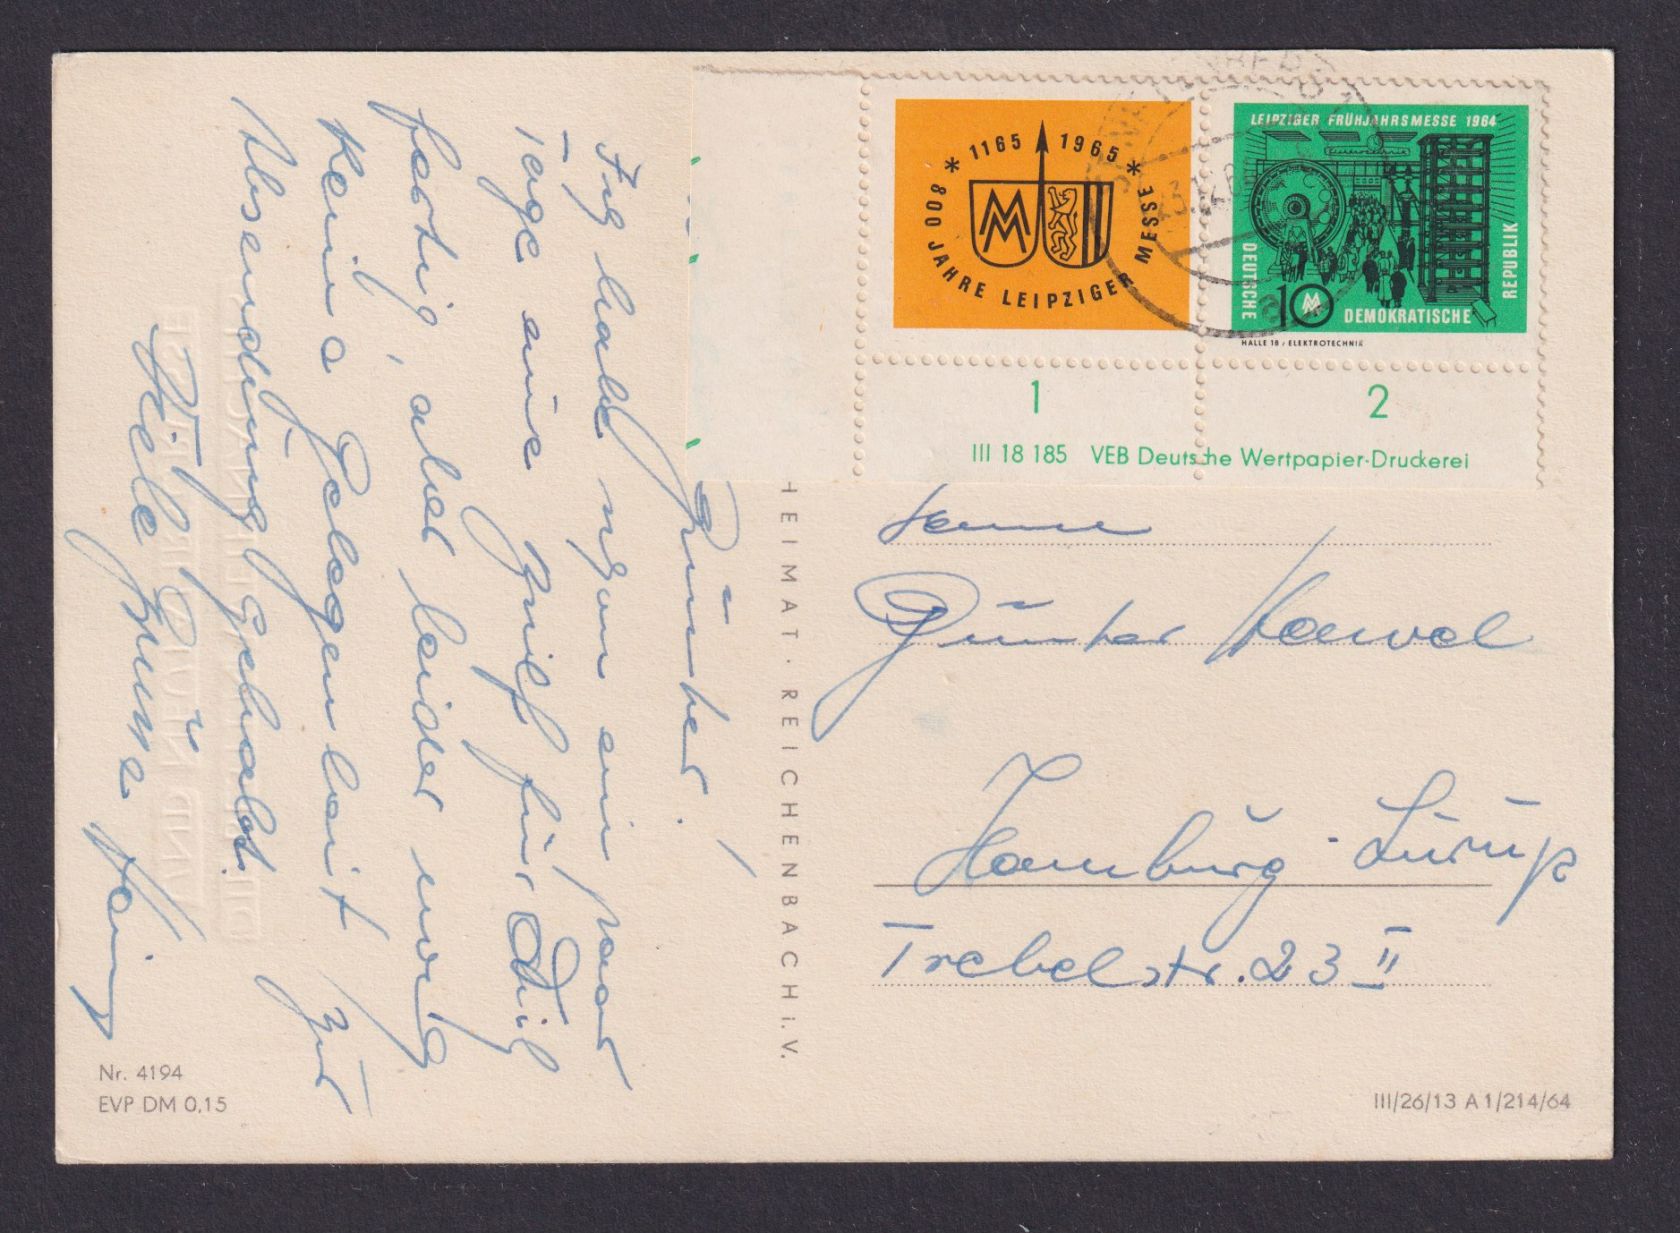 Günter!
Ich habe nun ein paar
Tage einen Brief für Dich
fertig, aber leider noch
keine Gelegenheit zur
Absendung gehabt.
Viele
* 1165 1965 *
800 JAHRE LEIPZIGER MESSE
MM
LEIPZIGER FRÜHJAHRSMESSE 1964
DEUTSCHE
10
MM
DEMOKRATISCHE
REPUBLIK
HALLE 18 / ELEKTROTECHNIK
1
2
III 18 185 VEB Deutsche Wertpapier-Druckerei
Herrn
Günter
Hamburg-Lurup
Trebelstr. 23 II
HEIMAT. REICHENBACH i. V.
Nr. 4194
EVP DM 0,15
III/26/13 A 1/214/64